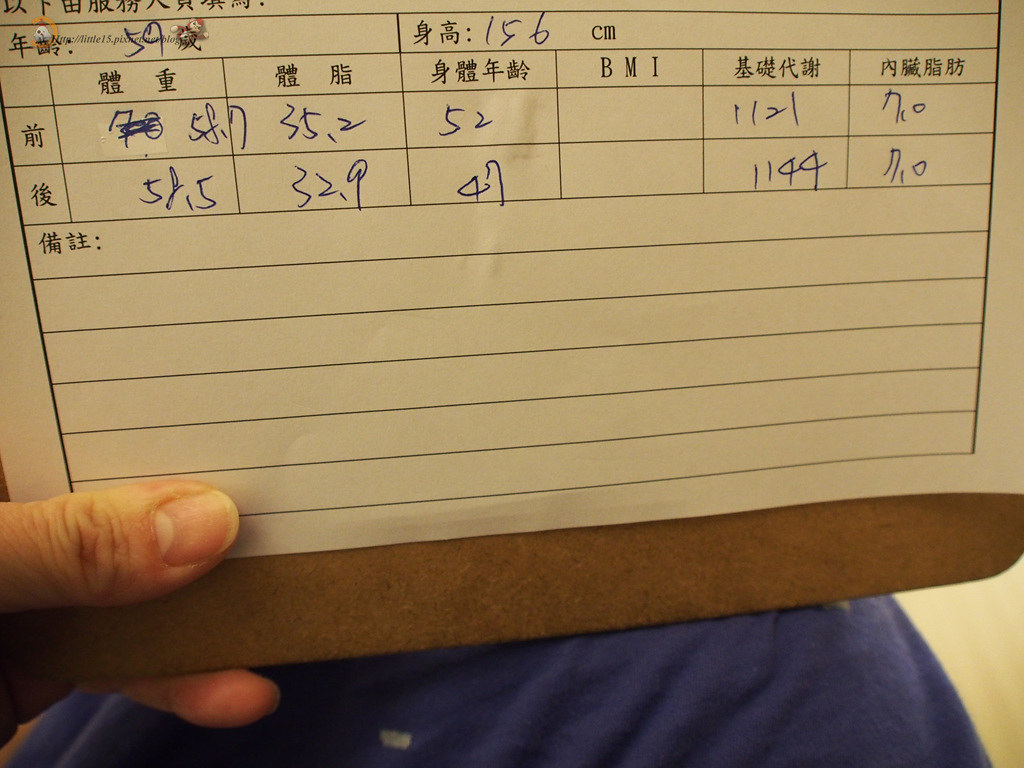 以下由服務人員填寫:
年齡: 歲 身高: 156 cm
體 重 體 脂 身體年齡 B M I 基礎代謝 內臟脂肪
前 58.7 35.2 52 1121 7.0
後 58.5 32.9 47 1144 7.0
備註: